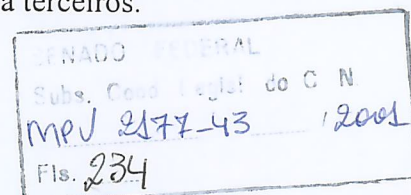 a terceiros.
SENADO FEDERAL
Subs. Coord. Legisl. do C N
MPV 2177-43 , 2001
Fls. 234